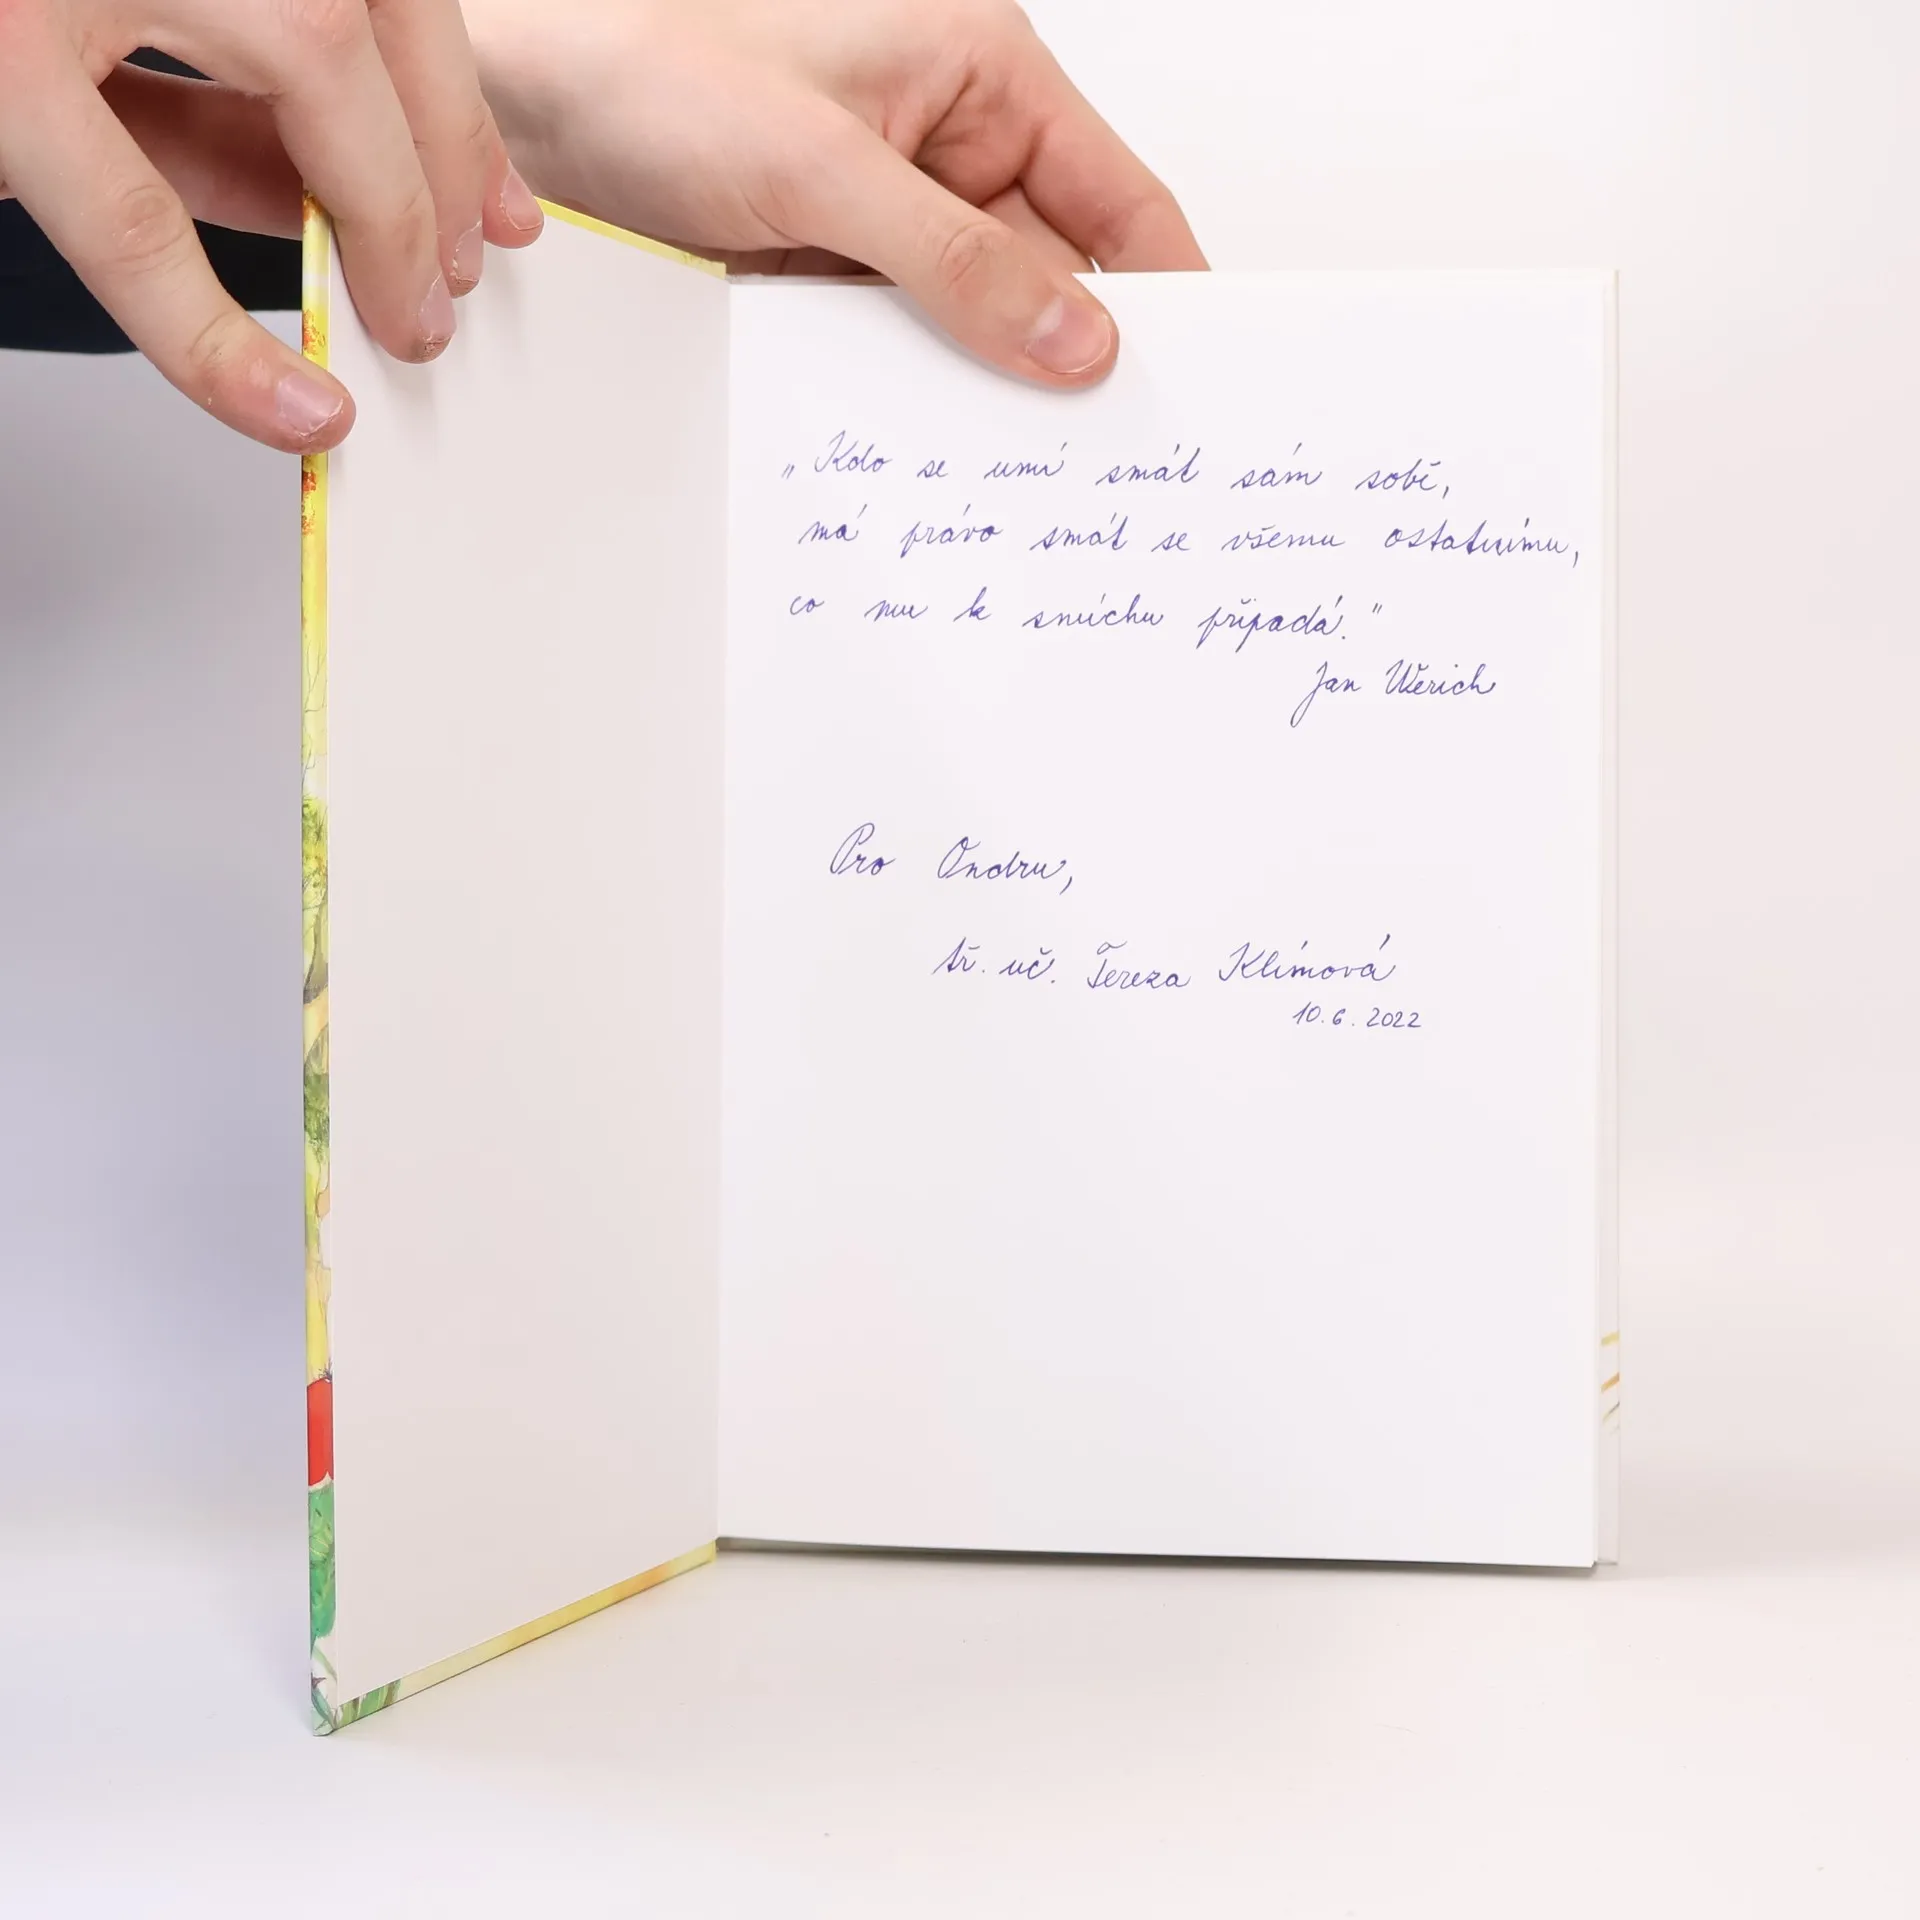 „Kdo se umí smát sám sobě,
má právo smát se všemu ostatnímu,
co mu k smíchu připadá."
Jan Werich
Pro Ondru,
tř. uč. Tereza Klímová
10.6.2022